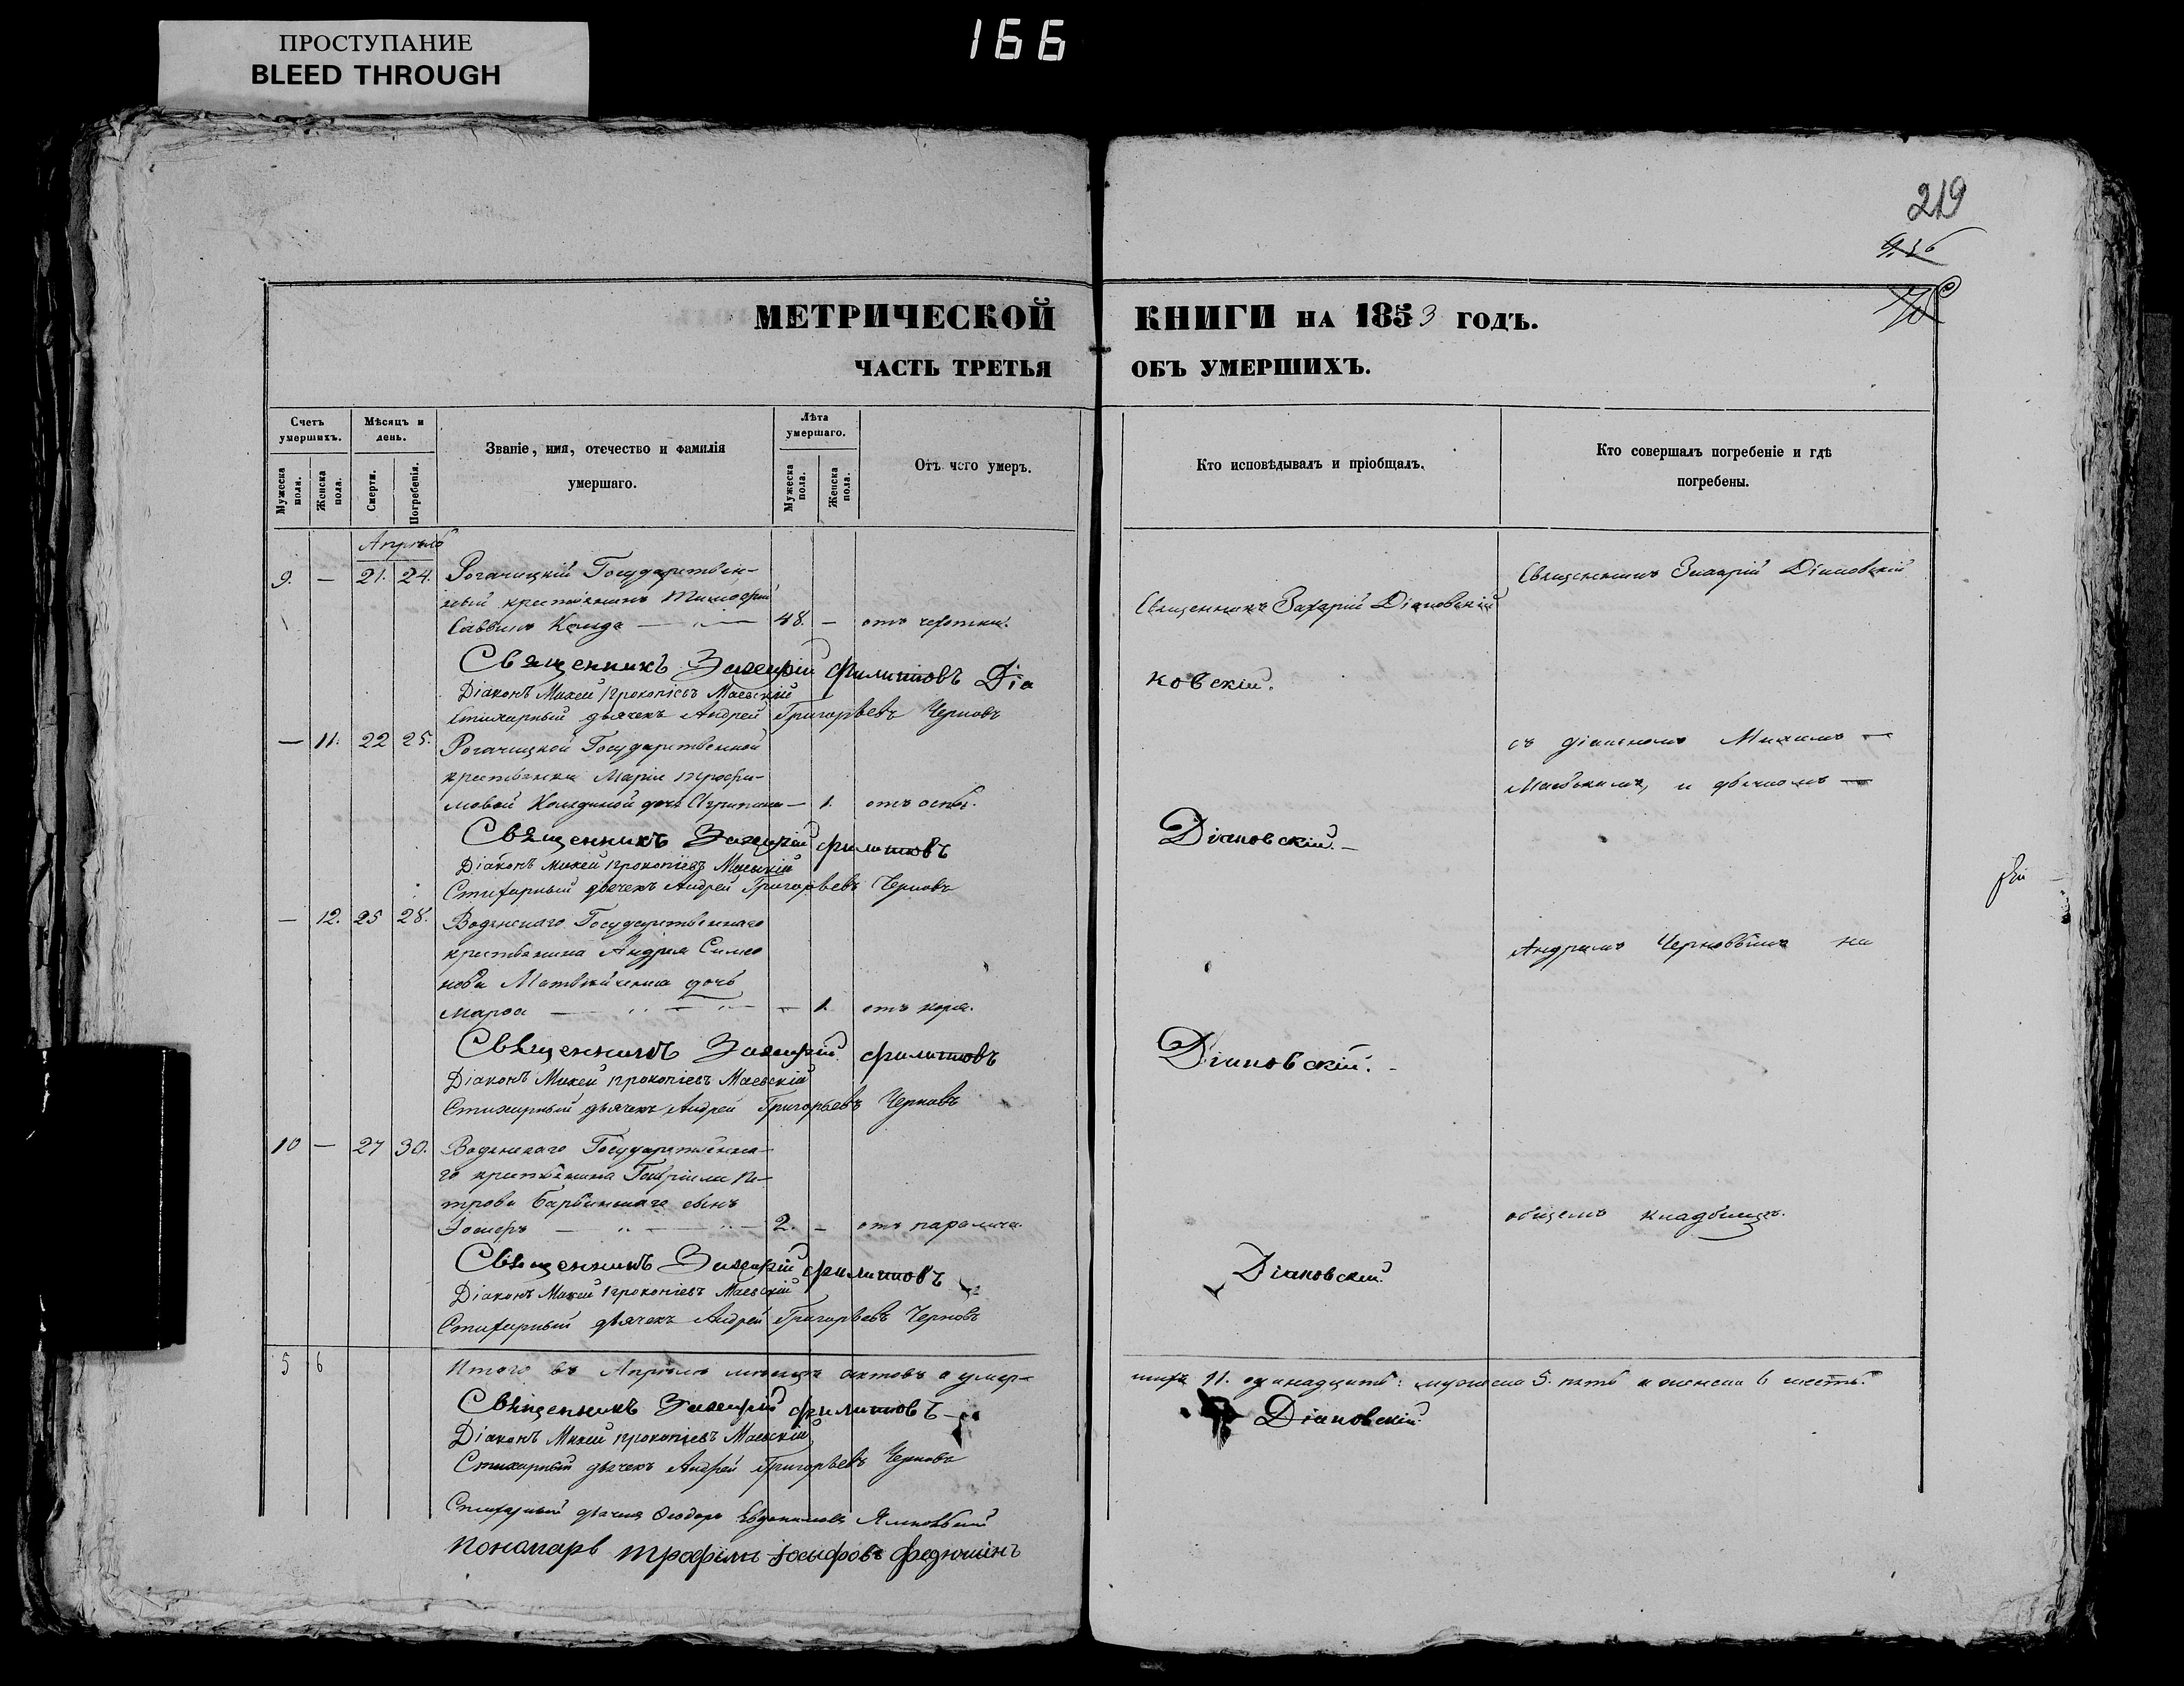 ПРОСТУПАНИЕ
BLEED THROUGH
166
219
МЕТРИЧЕСКОЙ КНИГИ НА 1853 ГОДЪ.
ЧАСТЬ ТРЕТЬЯ ОБЪ УМЕРШИХЪ.
Счетъ умершихъ.
Мужеска пола.
Женска пола.
Мѣсяцъ и день.
Смерти.
Погребенія.
Званіе, имя, отечество и фамилія
умершаго.
Лѣта умершаго.
Мужеска пола.
Женска пола.
Отъ чего умеръ.
Кто исповѣдывалъ и пріобщалъ.
Кто совершалъ погребеніе и гдѣ
погребены.
Апрѣль
9. — 21. 24. Рогачицкій Государствен-
ный крестьянинъ Тимофей
Саввинъ — 48. — отъ чехотки.
Священникъ Захарій Діаковскій
Священникъ Захарій Діаковскій
Священникъ Захарій Филиповъ Діа
ковскій.
Діаконъ Михей Прокопіевъ Маевскій
Стихарный дьячекъ Андрей Григорьевъ Черновъ
— 11. 22 25. Рогачицкой Государственной
крестьянки Маріи Трофи-
мовой дочь — 1. отъ оспы.
съ діакономъ Михеемъ —
Маевскимъ, и дьячкомъ —
Священникъ Захарій Филиповъ
Діаковскій. —
Діаконъ Михей Прокопіевъ Маевскій
Стихарный дьячекъ Андрей Григорьевъ Черновъ
— 12. 25 28. Водянскаго Государственнаго
крестьянина Андрея Симео
нова Матвѣйченка дочь
Марфа — — 1. отъ коря.
Андреемъ Черновымъ на
Священникъ Захарій Филиповъ
Діаковскій. -
Діаконъ Михей Прокопіевъ Маевскій
Стихарный дьячекъ Андрей Григорьевъ Черновъ
10 — 27 30. Водянскаго Государственна-
го крестьянина Гавріила Пе-
трова сынъ
Іосифъ — 2. — отъ паралича.
общемъ кладбищѣ.
Священникъ Захарій Филиповъ
Діаковскій.
Діаконъ Михей Прокопіевъ Маевскій
Стихарный дьячекъ Андрей Григорьевъ Черновъ
5 6 Итого въ Апрѣлѣ мѣсяцѣ актовъ о умер-
шихъ 11. одинадцать: мужеска 5. пять и женска 6 шесть.
Священникъ Захарій Филиповъ
Діаковскій
Діаконъ Михей Прокопіевъ Маевскій
Стихарный дьячекъ Андрей Григорьевъ Черновъ
Стихарный дьячекъ Ѳеодоръ Евдокимовъ
Пономарь Трофимъ Іосифовъ Федюшинъ